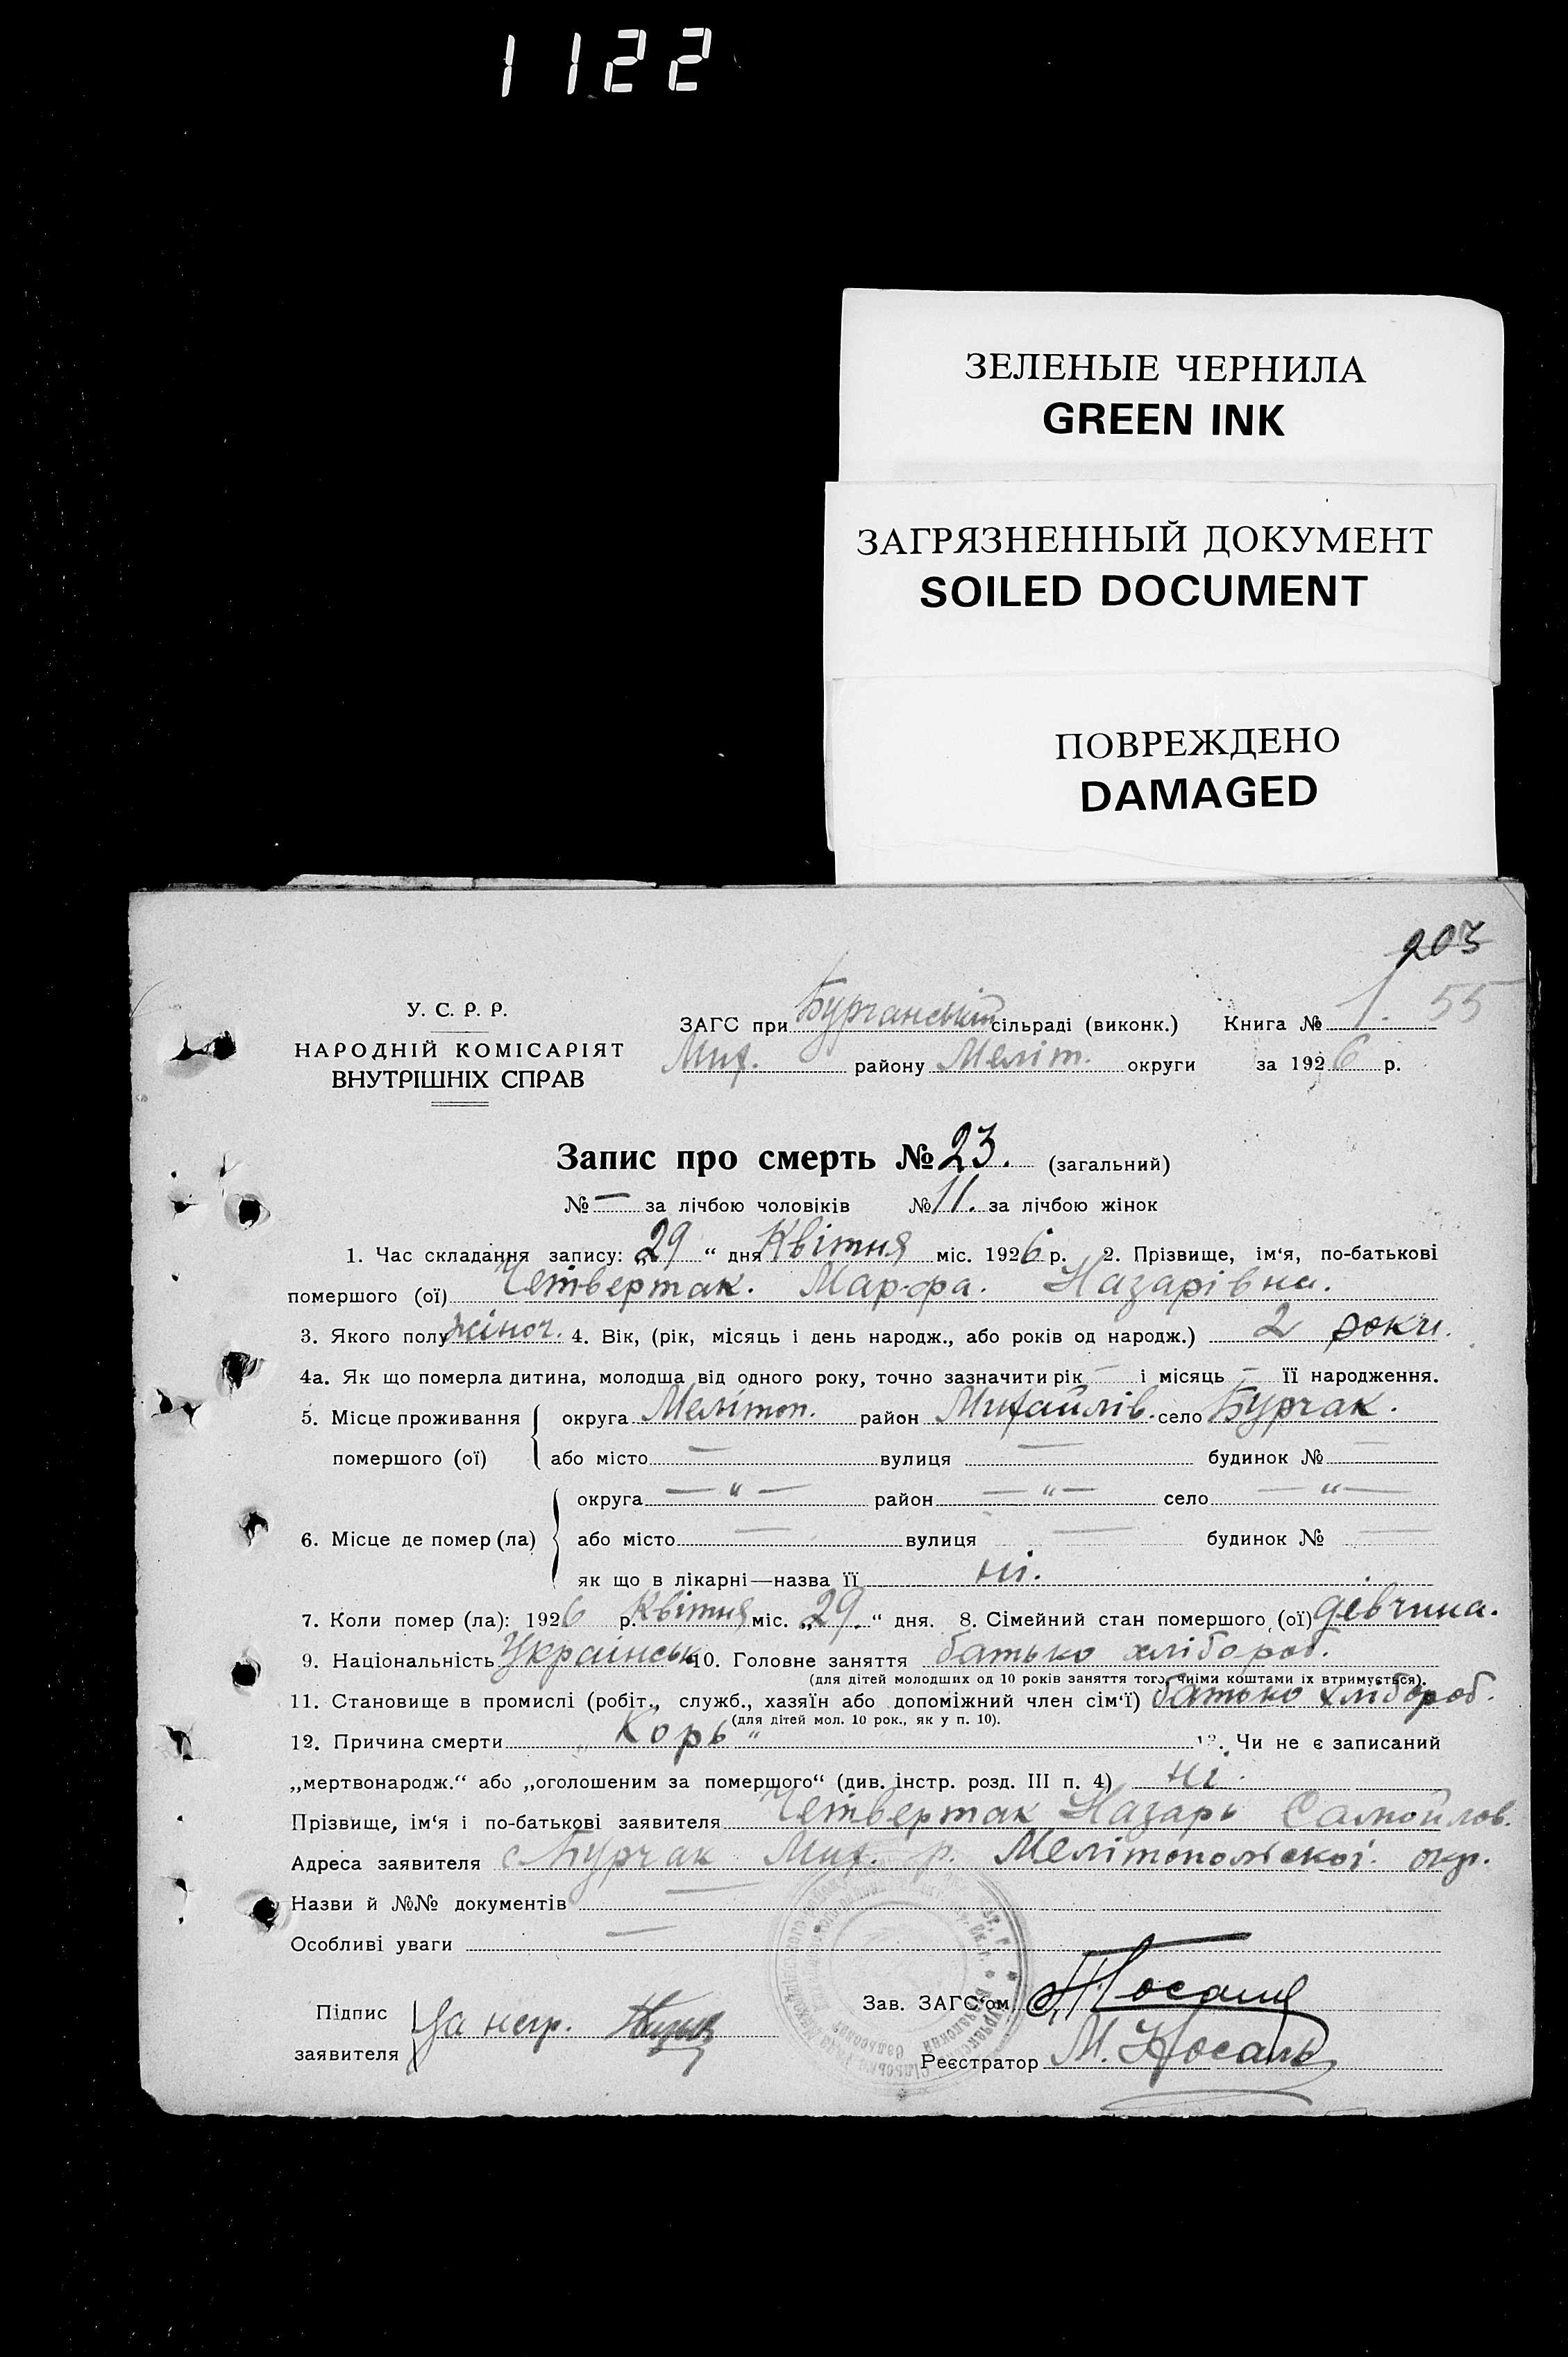 1122
ЗЕЛЕНЫЕ ЧЕРНИЛА
GREEN INK
ЗАГРЯЗНЕННЫЙ ДОКУМЕНТ
SOILED DOCUMENT
ПОВРЕЖДЕНО
DAMAGED
203
У. С. Р. Р.
НАРОДНІЙ КОМІСАРІЯТ
ВНУТРІШНІХ СПРАВ
ЗАГС при Бурчанській сільраді (виконк.) Книга № 1. 55
Мих. району Меліт. округи за 1926 р.
Запис про смерть № 23. (загальний)
№ — за лічбою чоловіків № 11. за лічбою жінок
1. Час складання запису: „29“ дня Квітня міс. 1926 р. 2. Прізвище, ім‘я, по-батькові
помершого (ої) Четвертак. Марфа. Назарівна.
3. Якого полу жіноч. 4. Вік, (рік, місяць і день народж., або років од народж.) 2 роки.
4а. Як що померла дитина, молодша від одного року, точно зазначити рік — і місяць — її народження.
5. Місце проживання округа Мелітоп. район Михайлів. село Бурчак.
помершого (ої) або місто — вулиця — будинок № —
округа — „ — район — „ — село — „ —
6. Місце де помер (ла) або місто — вулиця — будинок № —
як що в лікарні—назва її ні.
7. Коли помер (ла): 1926 р. Квітня міс. „29.“ дня. 8. Сімейний стан помершого (ої) девчина.
9. Національність Українськ. 10. Головне заняття батько хлібороб.
(для дітей молодших од 10 років заняття того, чиїми коштами їх втримується).
11. Становище в промислі (робіт., служб., хазяїн або допоміжний член сім‘ї) батько хлібороб.
(для дітей мол. 10 рок., як у п. 10).
12. Причина смерти „Корь“ 13. Чи не є записаний
„мертвонародж.“ або „оголошеним за помершого“ (див. інстр. розд. III п. 4) ні.
Прізвище, ім‘я і по-батькові заявителя Четвертак Назарь Самойлов.
Адреса заявителя с Бурчак Мих. р. Мелітопольскоі окр.
Назви й №№ документів —
Особливі уваги —
Підпис
заявителя За негр.
Зав. ЗАГС‘ом
Реєстратор М. Носаль